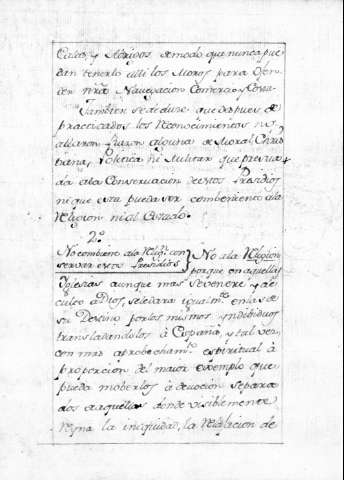 Calas, y Abrigos de modo que nunca pue-
dan tenerlo util los Moros para Ofen-
der nrã Navegacion Comercio y Costa
Tambien se deduce que despues de
practicados los Reconocimientos no
hallaron razon alguna de Moral Chris-
tiana, Politica ni Militar que persua-
da ala Conservacion de estos Presidios
ni que esta pueda ser combeniente ala
Religion ni al Estado.
2.º
No combiene ala Relig.n con
servar estos Presidios
No ala Religion
porque en aquellas
Yglesias aunque mas se venere y dé
culto a Dios, se le dara igualm.te en las de
su Destino por los mismos yndibiduos
transladandolos à España, y tal vez,
con mas aprobechamt.º espiritual à
proporcion del maior exemplo que
pueda moberlos à devocion separa
dos de aquellas donde visiblemente
Reyna la iniquidad, la Relajacion de